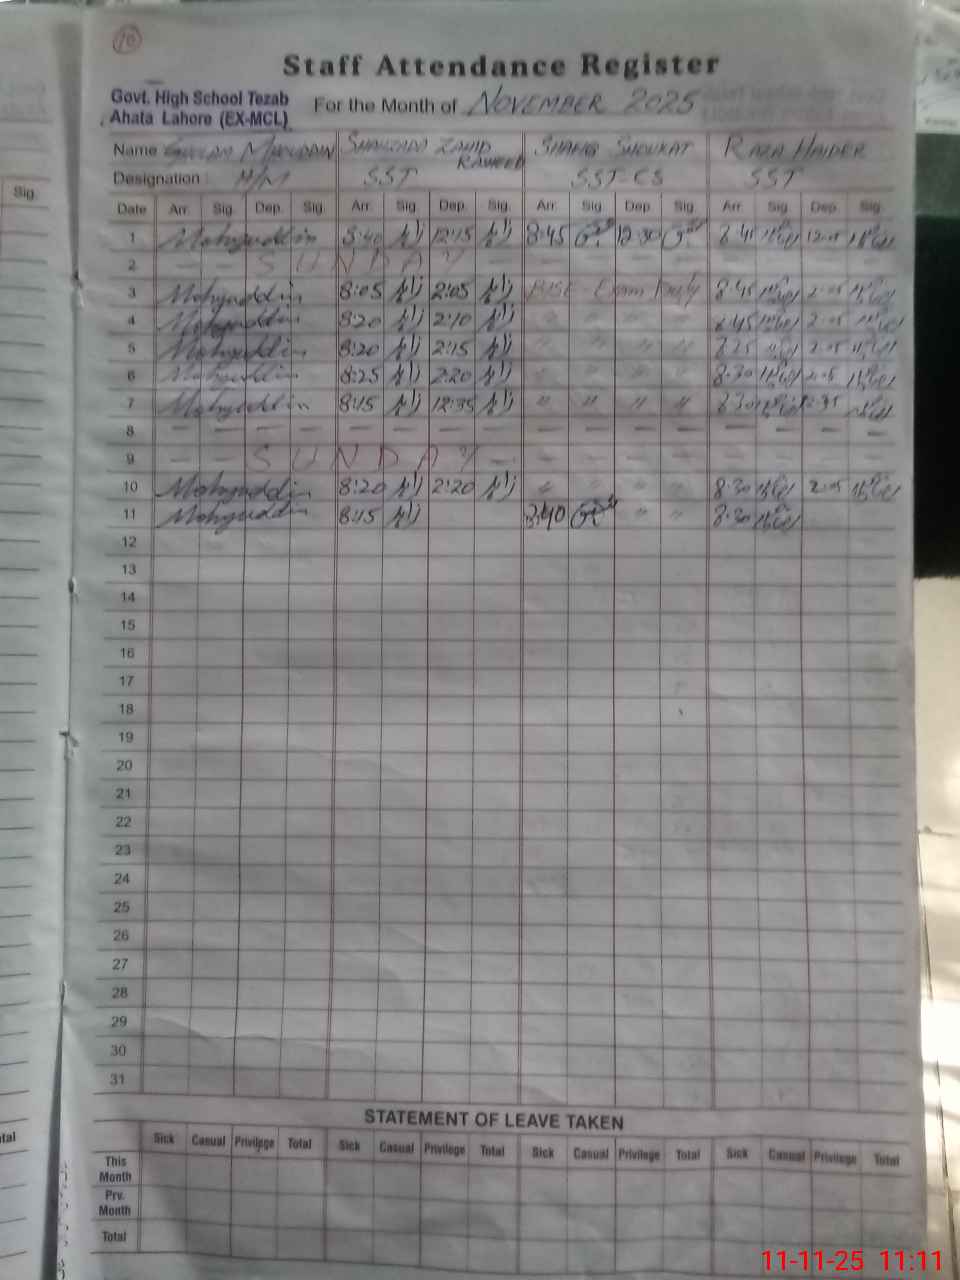 10
Staff Attendance Register
Govt. High School Tezab
Ahata Lahore (EX-MCL)
For the Month of NOVEMBER 2025
Name GHULAM MHOUDDIN SHAHZADA ZAHID RAWEED SHAFIQ SHOUKAT RAZA HAIDER
Designation : H/M SST SST-CS SST
Sig.
Date Arr. Sig. Dep. Sig. Arr. Sig. Dep. Sig. Arr. Sig. Dep. Sig. Arr. Sig. Dep. Sig.
1 Mohyuddin 8:40 12:15 8:45 12:30 8:45 12:05
2 — — SUNDAY — — — — — — — — —
3 Mohyuddin 8:05 2:05 BISE - Exam Duty 8:45 2:05
4 Mohyuddin 8:20 2:10 " " " " 8:45 2:05
5 Mohyuddin 8:20 2:15 " " " " 8:25 2:05
6 Mohyuddin 8:25 2:20 " " " " 8:30 2:05
7 Mohyuddin 8:15 12:35 " " " " 8:30 12:35
8 — — — — — — — — — — — — — — — —
9 — — SUNDAY — — — — — — — — —
10 Mohyuddin 8:20 2:20 " " " " 8:30 2:05
11 Mohyuddin 8:15 8:40 " " 8:30
12
13
14
15
16
17
18
19
20
21
22
23
24
25
26
27
28
29
30
31
STATEMENT OF LEAVE TAKEN
Sick Casual Privilege Total Sick Casual Privilege Total Sick Casual Privilege Total Sick Casual Privilege Total
This
Month
Prv.
Month
Total
tal
11-11-25 11:11